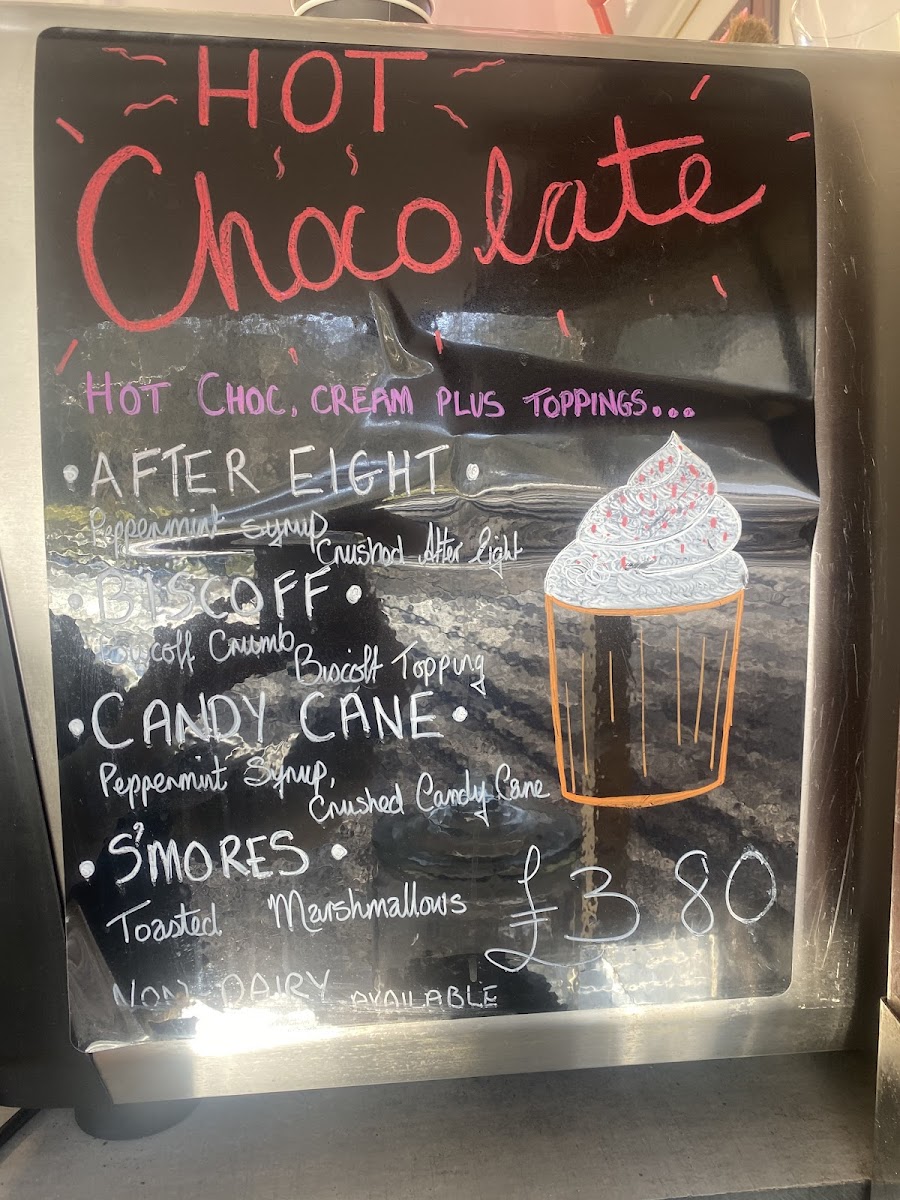 HOT
Chocolate
HOT CHOC, CREAM PLUS TOPPINGS...
• AFTER EIGHT •
Peppermint Syrup
Crushed After Eight
• BISCOFF •
Biscoff Crumb
Biscoff Topping
• CANDY CANE •
Peppermint Syrup,
Crushed Candy Cane
• S'MORES •
Toasted Marshmallows
£3.80
NON DAIRY AVAILABLE